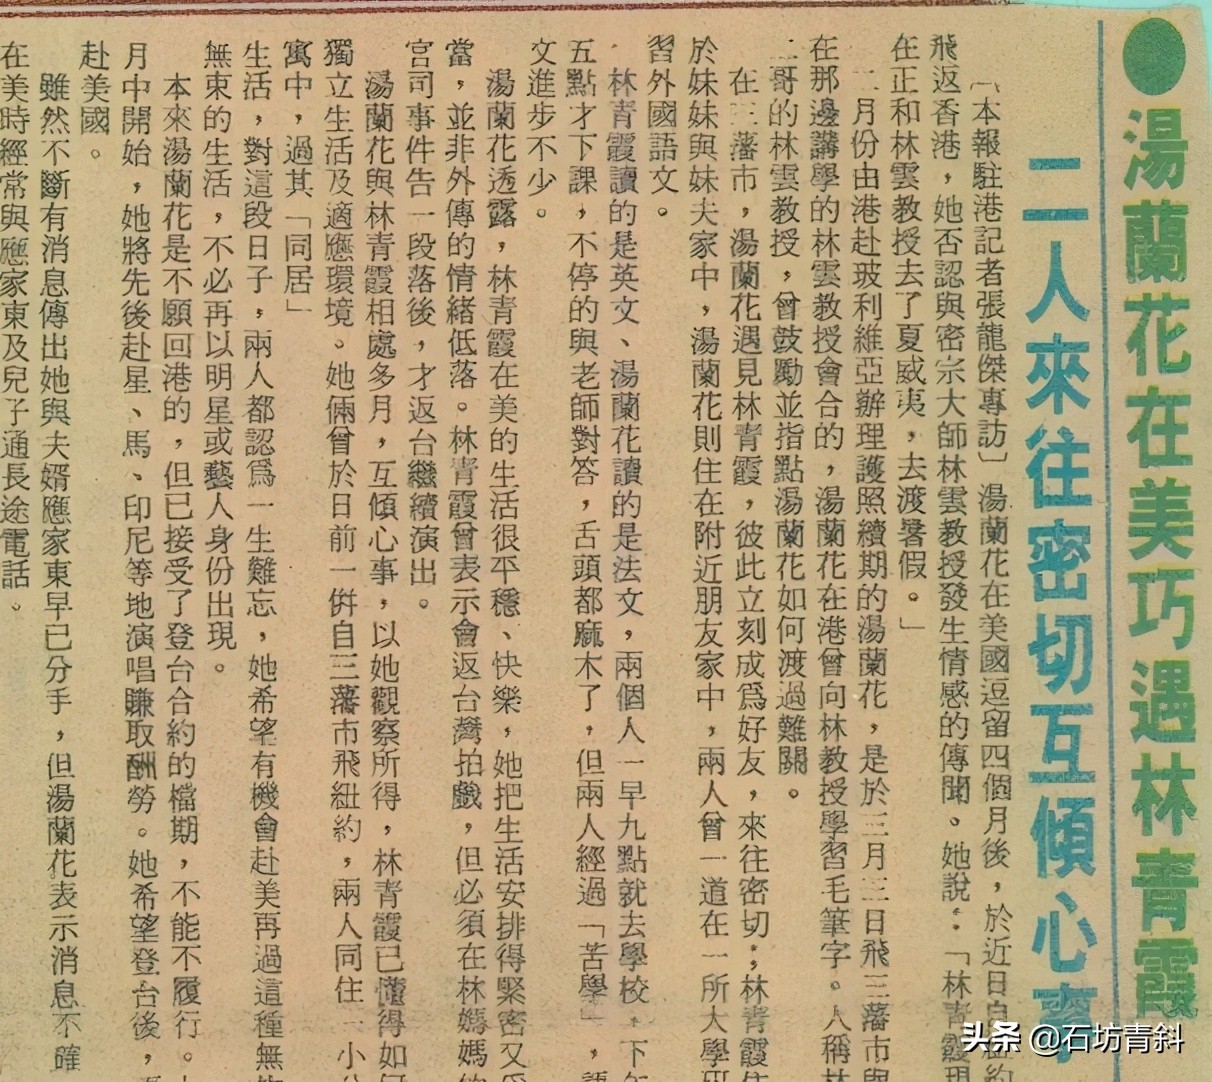 ●湯蘭花在美巧遇林青霞
二人來往密切互傾心事
〔本報駐港記者張龍傑專訪〕湯蘭花在美國逗留四個月後，於近日自紐約
飛返香港，她否認與密宗大師林雲教授發生情感的傳聞。她說：「林青霞現
在正和林雲教授去了夏威夷，去渡暑假。」
二月份由港赴玻利維亞辦理護照續期的湯蘭花，是於三月三日飛三藩市與
在那邊講學的林雲教授會合的，湯蘭花在港曾向林教授學習毛筆字。人稱林
二哥的林雲教授，曾鼓勵並指點湯蘭花如何渡過難關。
在三藩市，湯蘭花遇見林青霞，彼此立刻成爲好友，來往密切；林青霞住
於妹妹與妹夫家中，湯蘭花則住在附近朋友家中，兩人曾一道在一所大學研
習外國語文。
林青霞讀的是英文、湯蘭花讀的是法文，兩個人一早九點就去學校，下午
五點才下課，不停的與老師對答，舌頭都麻木了，但兩人經過「苦學」，語
文進步不少。
湯蘭花透露，林青霞在美的生活很平穩、快樂，她把生活安排得緊密又
當，並非外傳的情緒低落。林青霞曾表示會返台灣拍戲，但必須在林媽媽的
官司事件告一段落後，才返台繼續演出。
湯蘭花與林青霞相處多月，互傾心事，以她觀察所得，林青霞已懂得如何
獨立生活及適應環境。她倆曾於日前一倂自三藩市飛紐約，兩人同住一小公
寓中，過其「同居」
生活，對這段日子，兩人都認爲一生難忘，她希望有機會赴美再過這種無拘
無束的生活，不必再以明星或藝人身份出現。
本來湯蘭花是不願回港的，但已接受了登台合約的檔期，不能不履行。
月中開始，她將先後赴星、馬、印尼等地演唱賺取酬勞。她希望登台後，再
赴美國。
雖然不斷有消息傳出她與夫婿應家東早已分手，但湯蘭花表示消息不確
在美時經常與應家東及兒子通長途電話。
头条 @石坊青斜